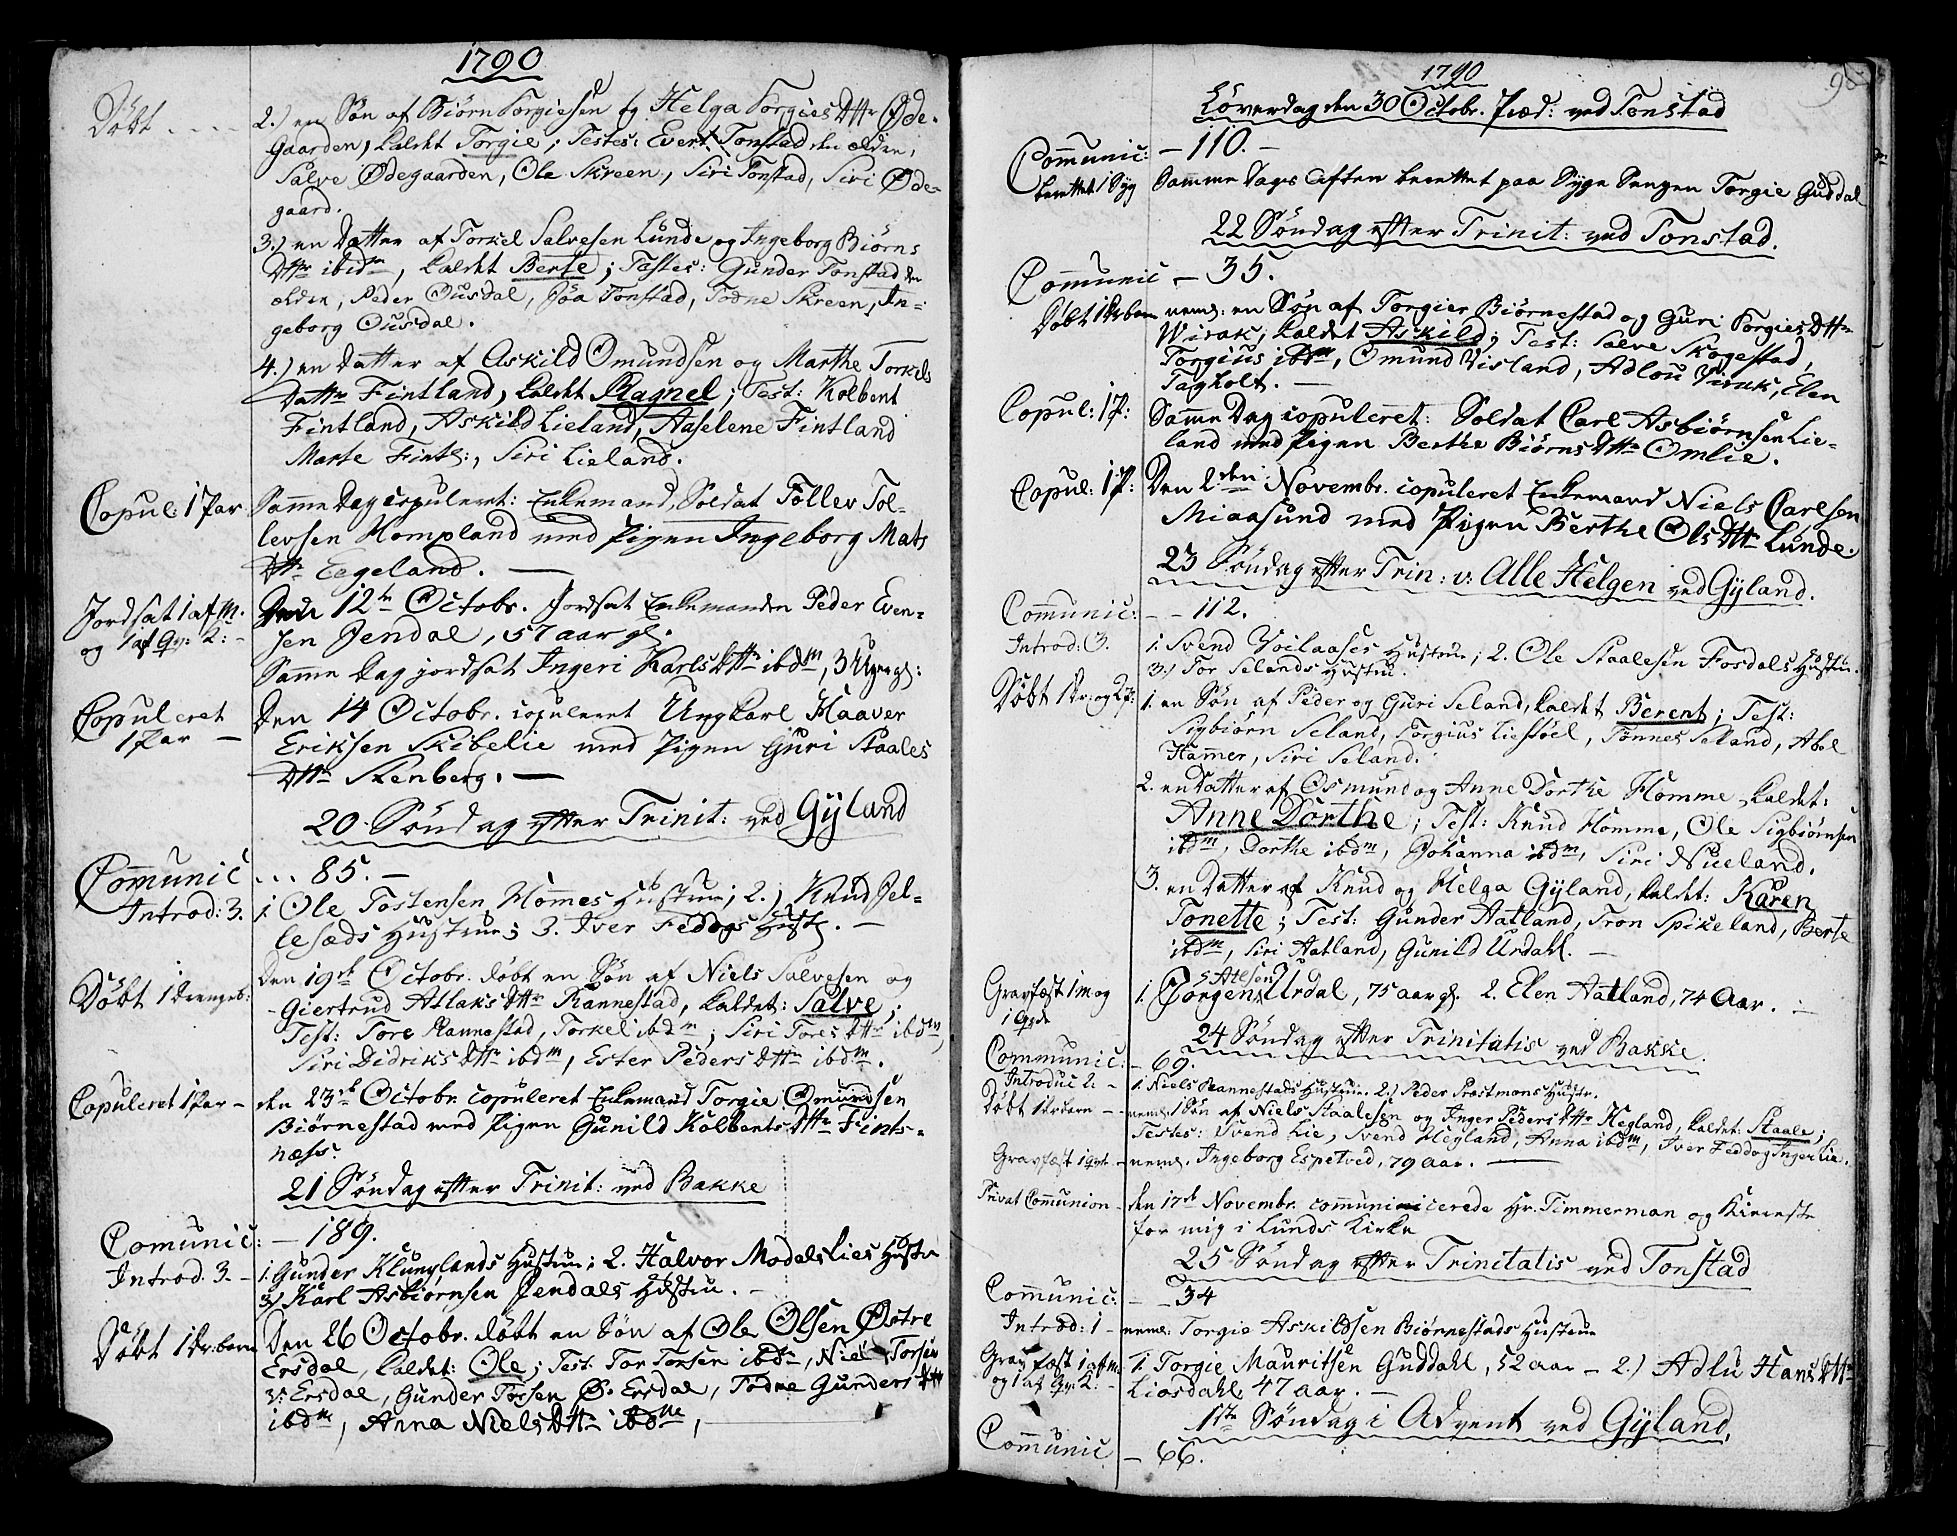 1790
Döbt - - - -
2.) en Søn af Biørn Torgiesen og Helga Torgies Dttr Øde-
Gaarden, kaldet Torgie; Testes: Evert Tonstad den ælden,
Salve Ødegaarden, Ole Skreen, Siri Tonstad, Siri Øde-
gaard.
3.) en Datter af Torkel Salvesen Lunde og Ingeborg Biørns
Dttr ibidm, kaldet Berte; Testes: Gunder Tonstad den
ælden, Peder Ousdal, Jöa Tonstad, Todne Skreen, In-
geborg Ousdal.
4.) en Datter af Askild Omundsen og Marthe Torkels
Dattr Fintland, kaldet Ragnel; Test: Kolbent
Fintland, Askild Lieland, Aaselene Fintland
Marte Fintl:, Siri Lieland.
Copul: 1 Par
Samme Dag copuleret: Enkemand, Soldat Tollev Tol-
levsen Hompland med Pigen Ingeborg Mats
Dttr Eegeland. —
Jordsat 1 af M.
og 1 af Qv: K: -
Den 12te Octobr. Jordsat Enkemanden Peder Even-
sen Jendal, 57 aar gl.
Samme dag jordsat Ingeri Karls Dttr ibdm, 3 Uger gl:
Copuleret
1 Par —
Den 14 Octobr. copuleret Ungkarl Haaver
Eriksen Skibelie med Pigen Guri Staales
Dttr Stenberg. —
20 Söndag efter Trinit: ved Gyland
Communic ... 85. —
Introd: 3.
1. Ole Tostensen Hommes Hustrue; 2.) Knud Jel-
lesæds Hustrue; 3. Iver Feddogs Hustr. —
Döbt 1 Drengeb:
Den 19de Octobr. döbt en Søn af Niels Salvesen og
Giertrud Atlaks Dttr Rannestad, kaldet: Salve;
Test: Tore Rannestad, Torkel ibdm; Siri Tores Dttr ibdm,
Siri Didriks Dttr ibdm, Ester Peders Dttr ibdm.
Copuleret 1 Par —
den 23de Octobr. copuleret Enkemand Torgie Omundsen
Biørnestad med Pigen Gunild Kolbents Dttr Fints-
næss.
21 Söndag efter Trinit: ved Bakke
Comunic: — 189.
Introd. 3. -
1. Gunder Klunglands Hustrue; 2. Halvor Modals Lies Hustru
3.) Karl Asbiørnsen Jendals Hustru. —
Döbt 1 Dr: barn
Den 26 Octobr. döbt en Søn af Ole Olsen Østre
Ersdal, kaldet: Ole; Test. Tor Torsen ibdm, Niels Torsen
V: Ersdal, Gunder Torsen Ø. Ersdal, Todne Gunders Dttr
ibdm, Anna Niels Dttr ibdm,
1790
Löverdag den 30 Octobr. Præd: ved Tonstad
Communic: — 110. —
berettet 1 Syg
Samme Dags Aften berettet paa Syge Sengen Torgie Guddal
22 Söndag efter Trinit: ved Tonstad.
Communic — 35.
Döbt 1 Dr. barn
neml: en Søn af Torgier Biørnestad og Guri Torgies Dttr
Wirak, kaldet Askild; Test: Salve Skogestad,
Torgius ibdm, Omund Visland, Adlou Virak, Elen
Tagholt. —
Copul: 1 P:
Samme Dag copuleret: Soldat Carl Asbiørnsen Lie-
land med Pigen Berthe Biørns Dttr Omlie.
Copul: 1 P:
Den 2den Novembr. copuleret Enkemand Niels Carlsen
Miaasund med Pigen Berthe Ols Dttr Lunde.
23 Söndag efter Trin: v: Alle Helgen ved Gyland.
Communic: - - 112.
Introd: 3.
1. Svend Voilaases Hustrue; 2. Ole Staalesen Fosdals Hustru.
3.) Tor Selands Hustru.
Döbt 1 Dr: og 2 P:
1. en Søn af Peder og Guri Seland, kaldet Berent; Test:
Sigbiørn Seland, Torgius Liestöel, Tönnes Seland, Abel
Hamer, Siri Seland.
2. en Datter af Osmund og Anne Dorthe Homme kaldet:
Anne Dorthe; Test: Knud Homme, Ole Sigbiørnsen
ibdm, Dorthe ibdm, Johanna ibdm, Siri Nueland.
3. en Datter af Knud og Helga Gyland, kaldet: Karen
Tonette; Test: Gunder Aatland, Tron Spikeland, Berte
ibdm, Siri Aatland, Gunild Urdahl. —
Gravfæst 1 M og
1 Qvde
1. Jörgen Atlesen Urdal, 75 aar gl. 2. Elen Aatland, 74 Aar. —
24 Söndag efter Trinitatis ved Bakke.
Communic: — 69.
Introduc 2. -
1. Niels Rannestads Hustrue. 2.) Peder Præstmons Hustr.
Döbt 1 Dr. barn —
neml. 1 Søn af Niels Staalesen og Inger Peders Dttr Hegland, kaldet: Staale;
Testes: Svend Lie, Svend Hegland, Anna ibdm, Iver Feddog Inger Lie.
Gravfæst 1 Qvde —
neml. Ingeborg Espetved, 79 aar. —
Privat Communion —
den 17de Novembr. communicerede Hr. Timmerman og Kiereste
for mig i Lunds Kirke
25 Söndag efter Trinitatis ved Tonstad
Communic: — 34
Introd: 1 -
neml: Torgie Askildsen Biørnestads Hustrue
Gravfæst 1 af M
og 1 af Qv: K: -
1. Torgie Mauritsen Guddahl, 52 aar — 2.) Adlu Hans Dttr
Liosdahl, 47 aar. —
1ste Söndag i Advent ved Gyland.
Communic — 66.